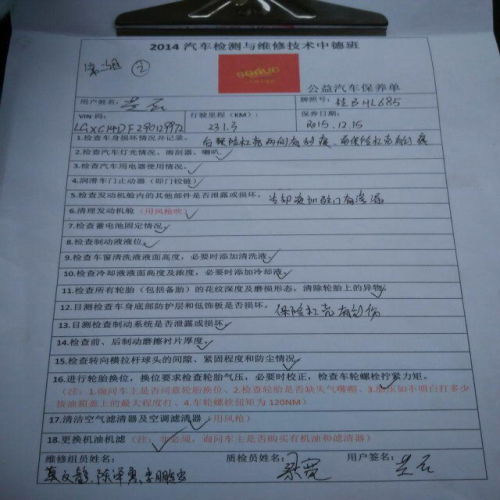 2014 汽车检测与维修技术中德班
②
公益汽车保养单
用户姓名: 兰石 牌照号:
VIN 码: 行驶里程(KM): 保养日期:
231.3 2015.12.15
1.检查车身损坏情况并记录。
2.检查汽车灯光情况、雨刮器、喇叭
3.检查汽车用电器使用情况。
4.润滑车门止动器(即门铰链)
5.检查发动机舱内的其他部件是否泄露或损坏。
6.清理发动机舱(用风枪吹)
7.检查蓄电池固定情况
8.检查制动液液位
9.检查车窗清洗液液面高度,必要时添加清洗液
10.检查冷却液液面高度及浓度,必要时添加冷却液
11.检查所有轮胎(包括备胎)的花纹深度及磨损形态,清除轮胎上的异物
12.目测检查车身底部防护层和低饰板是否损坏。
13.目测检查制动系统是否泄露或损坏
14.检查前、后制动磨擦衬片厚度。
15.检查转向横拉杆球头的间隙、紧固程度和防尘情况
16.进行轮胎换位,换位要求检查轮胎气压,必要时校正,检查车轮螺栓拧紧力矩。
(注:1.询问车主是否同意轮胎换位、2.检查轮胎是否缺失气嘴帽、3.胎压如不明白打多少
按油箱盖上的最大程度打、4.车轮螺栓扭矩为 120NM)
17.清洁空气滤清器及空调滤清器(用风枪)
18.更换机油机滤(注:非必须,询问车主是否购买有机油和滤清器)
维修组员姓名: 质检员姓名: 用户签名:
兰石